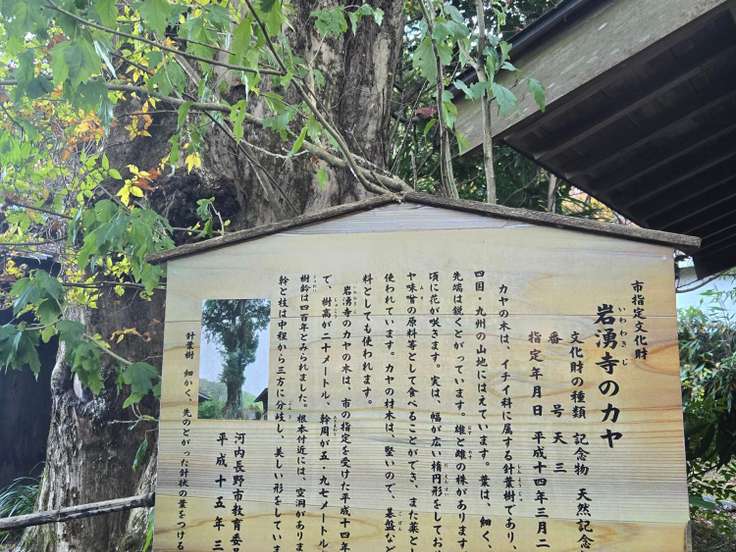 市指定文化財
岩湧寺のカヤ
いわわきじ
文化財の種類 記念物 天然記念
番号 天三
指定年月日 平成十四年三月二
カヤの木は、イチイ科に属する針葉樹であり、
四国・九州の山地にはえています。葉は、細く、
先端は鋭くとがっています。雄と雌の株があります
頃に花が咲きます。実は、幅が広い楕円形をしてお
や味噌の原料等として食べることができ、また薬と
使われています。カヤの材木は、堅いので、碁盤など
料としても使われます。
岩湧寺のカヤの木は、市の指定を受けた平成十四年
で、樹高が二十メートル、幹周が五・九七メートル
樹齢は四百年とみられました。根本付近には、空洞がありま
幹と枝は中程から三方に分岐し、美しい形をしていま
河内長野市教育委員
平成十五年三
針葉樹 細かく、先のとがった針状の葉をつける